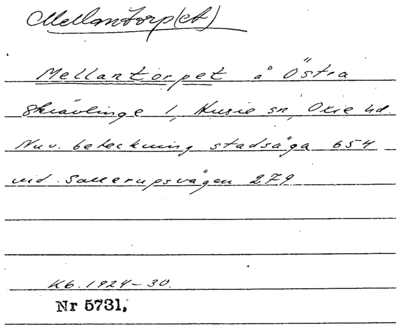 Mellantorp(et)
Mellantorpet å Östra
Skrävlinge 1, Husie sn, Oxie hd
Nuv. beteckning stadsäga 654
vid Sallerupsvägen 279
Kb. 1924-30.
Nr 5731,